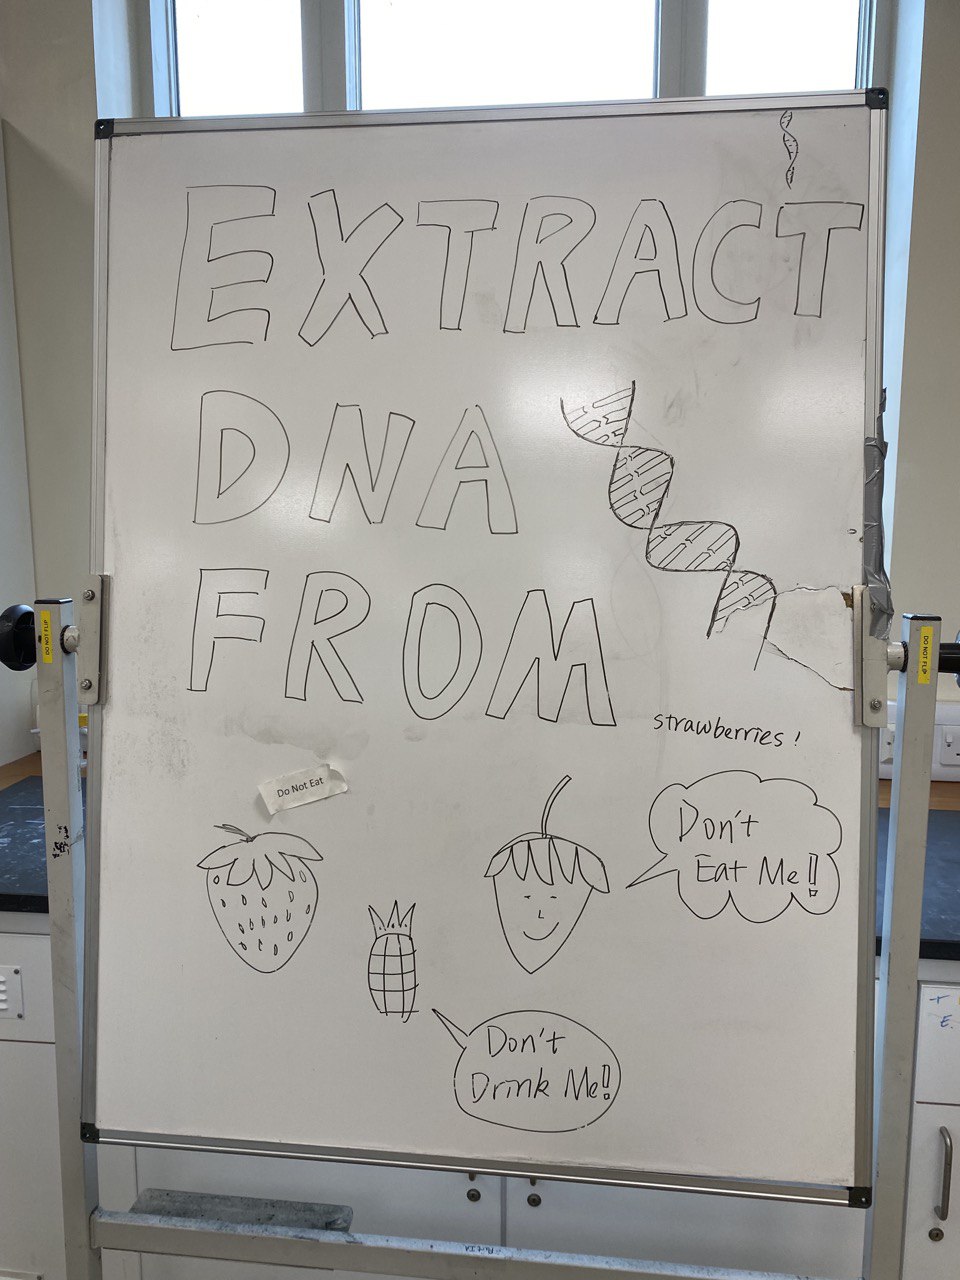 EXTRACT
DNA
FROM
strawberries!
Do Not Eat
Don't
Eat Me!!
Don't
Drink Me!!
DO NOT FLIP
DO NOT FLIP